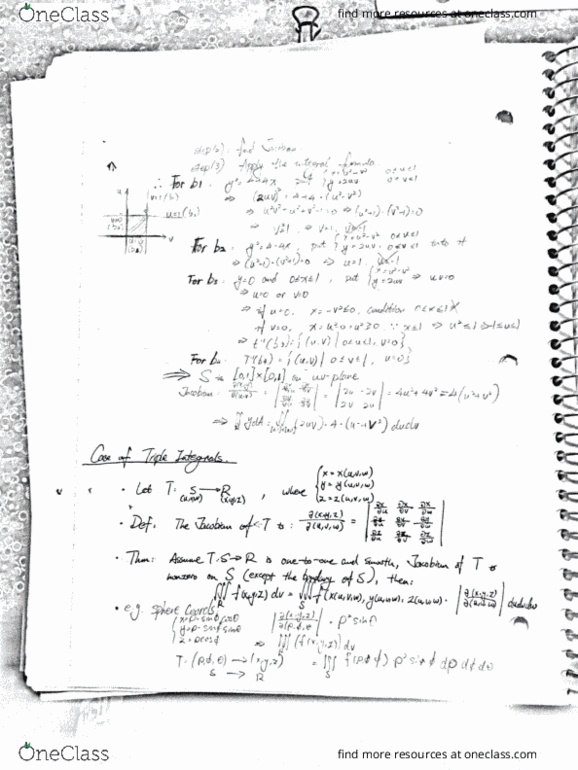 OneClass
find more resources at oneclass.com
step(2). find Jacobian
step(3) Apply the integral formula.
∴ For b1. y²=4+4x
⇒ (2uv)² = 4+4·(u²-v²)
⇒ (u²+1)·(v²-1)=0
For b2. y²=4-4x, put { x=u²-v² y=2uv 0≤v≤1 into it
⇒ u=1
For b3. y=0 and 0≤x≤1, put { x=u²-v² y=2uv ⇒ uv=0
⇒ u=0 or v=0
if u=0, x=-v²≤0, condition 0≤x≤1 X
if v=0, x=u²-0=u²≥0 ∵ x≤1 ⇒ u²≤1
⇒ T⁻¹(b3)={(u,v) | 0≤u≤1, v=0}
For b4. T⁻¹(b4)={(u,v) | 0≤v≤1, u=0}
⇒ S = [0,1]×[0,1] on uv-plane
Jacobian: ∂(x,y)/∂(u,v) = | 2u -2v 2v 2u | = 4u²+4v² = 4(u²+v²)
⇒ ∬ y dA = ∬ (2uv)·4·(u²+v²) dudv
Case of Triple Integrals.
· Let T: S → R, where { x=x(u,v,w) y=y(u,v,w) z=z(u,v,w)
(u,v,w) (x,y,z)
· Def: The Jacobian of T is: ∂(x,y,z)/∂(u,v,w) = | ∂x/∂u ∂x/∂v ∂x/∂w ∂y/∂u ∂y/∂v ∂y/∂w ∂z/∂u ∂z/∂v ∂z/∂w |
· Thm: Assume T: S→R is one-to-one and smooth, Jacobian of T is
nonzero on S (except the bndry of S), then:
∭ f(x,y,z) dv = ∭ f(x(u,v,w), y(u,v,w), z(u,v,w)) · | ∂(x,y,z)/∂(u,v,w) | dudvdw
· e.g. sphere Coords
{ x=ρ·sinφcosθ y=ρ·sinφsinθ z=ρcosφ
| ∂(x,y,z)/∂(ρ,φ,θ) | = ρ²sinφ
⇒ ∭ f(x,y,z) dv
T: (ρ,φ,θ) → (x,y,z) = ∭ f(ρ,φ,θ) ρ²sinφ dρ dφ dθ
S → R
OneClass
find more resources at oneclass.com